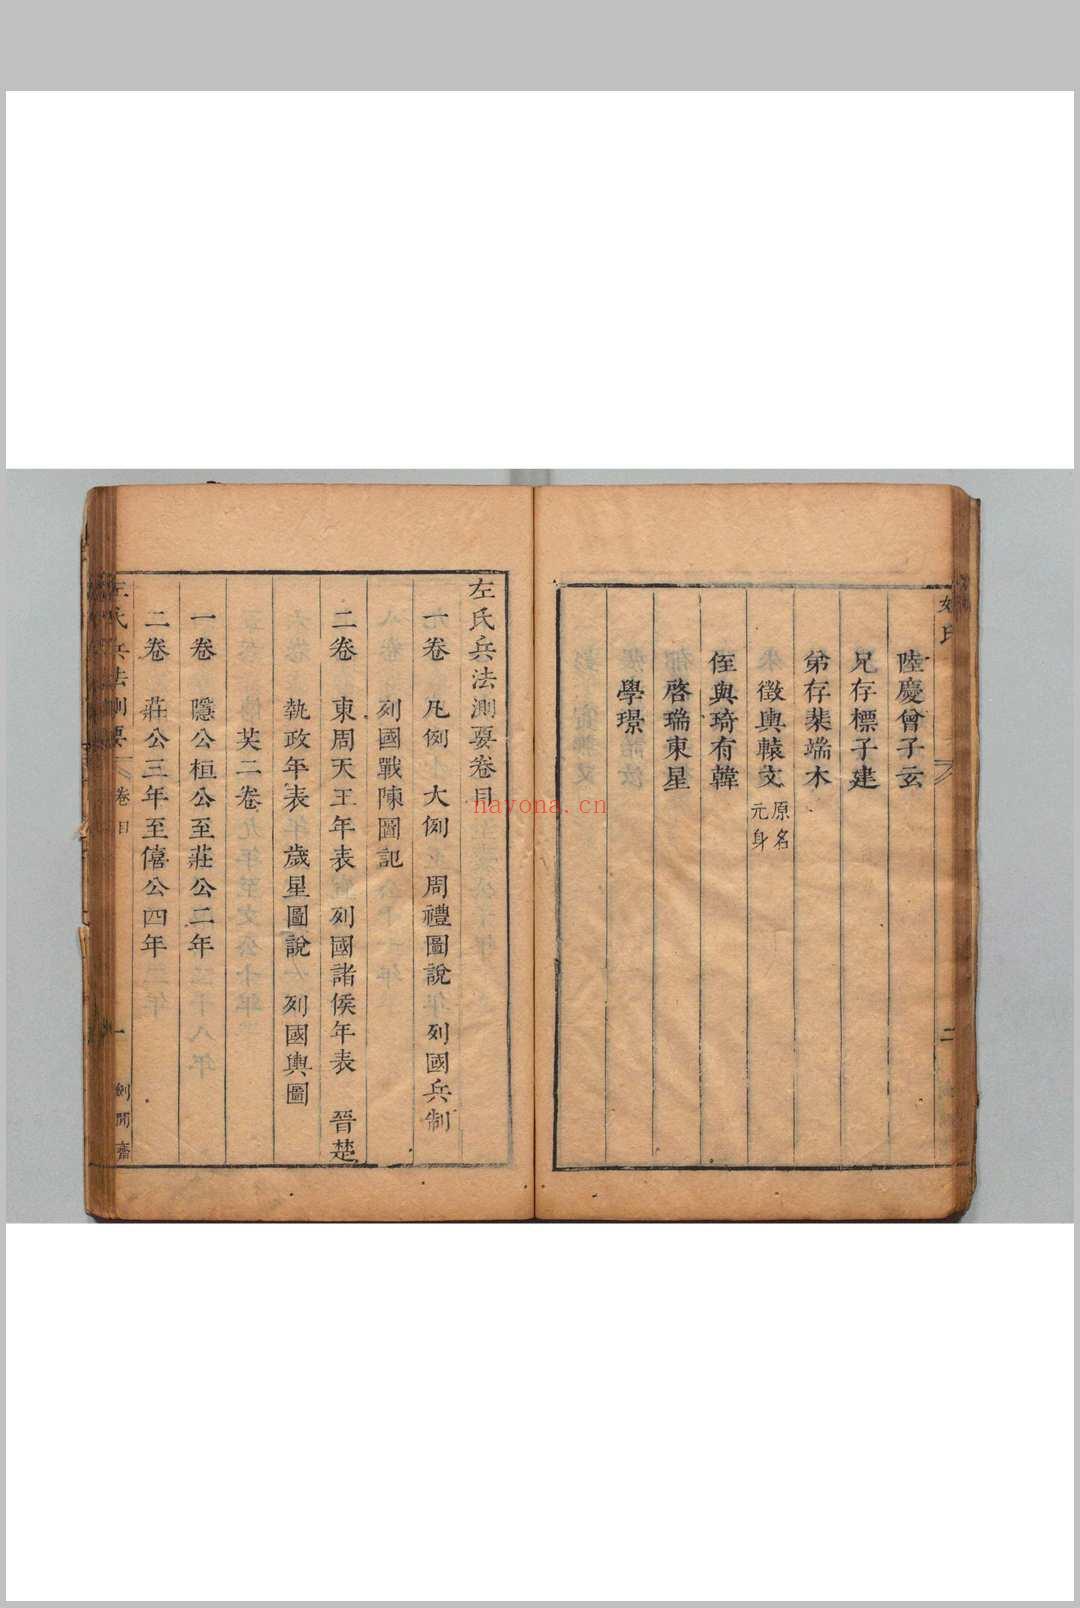 陸慶曾子玄
兄存標子建
弟存棻端木
徵輿轅文原名元身
侄與琦有韓
啓瑞東星
學璟
二
左氏兵法測要卷目
元卷 凡例 大例 周禮圖說 列國兵制
列國戰陳圖記
二卷 東周天王年表 列國諸侯年表 晉楚
執政年表 歲星圖說 列國輿圖
共二卷
一卷 隱公桓公至莊公二年
二卷 莊公三年至僖公四年
左氏兵法測要 卷目 一 劍閒齋
nayona.cn